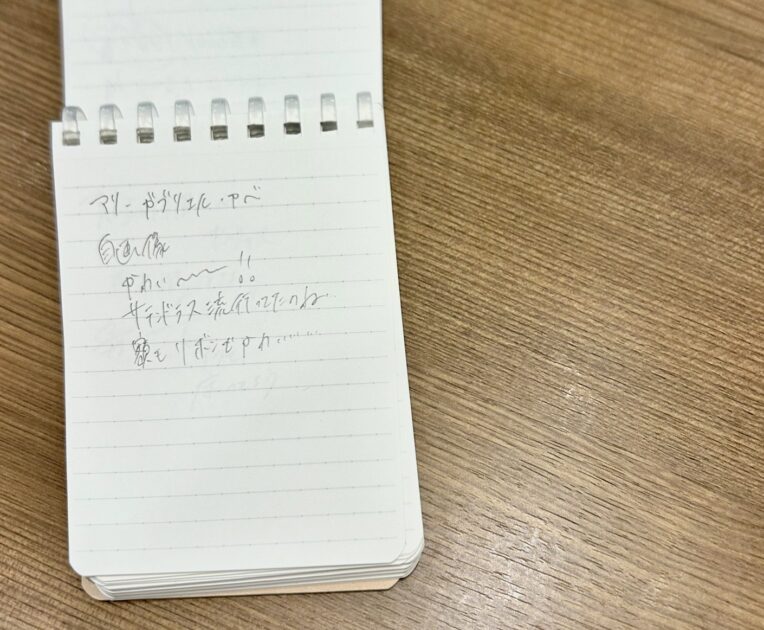 マリー・ガブリエル・カペ
自画像
かわい〜〜!!
サテンドレス流行ってたのね
額もリボンでかわ……